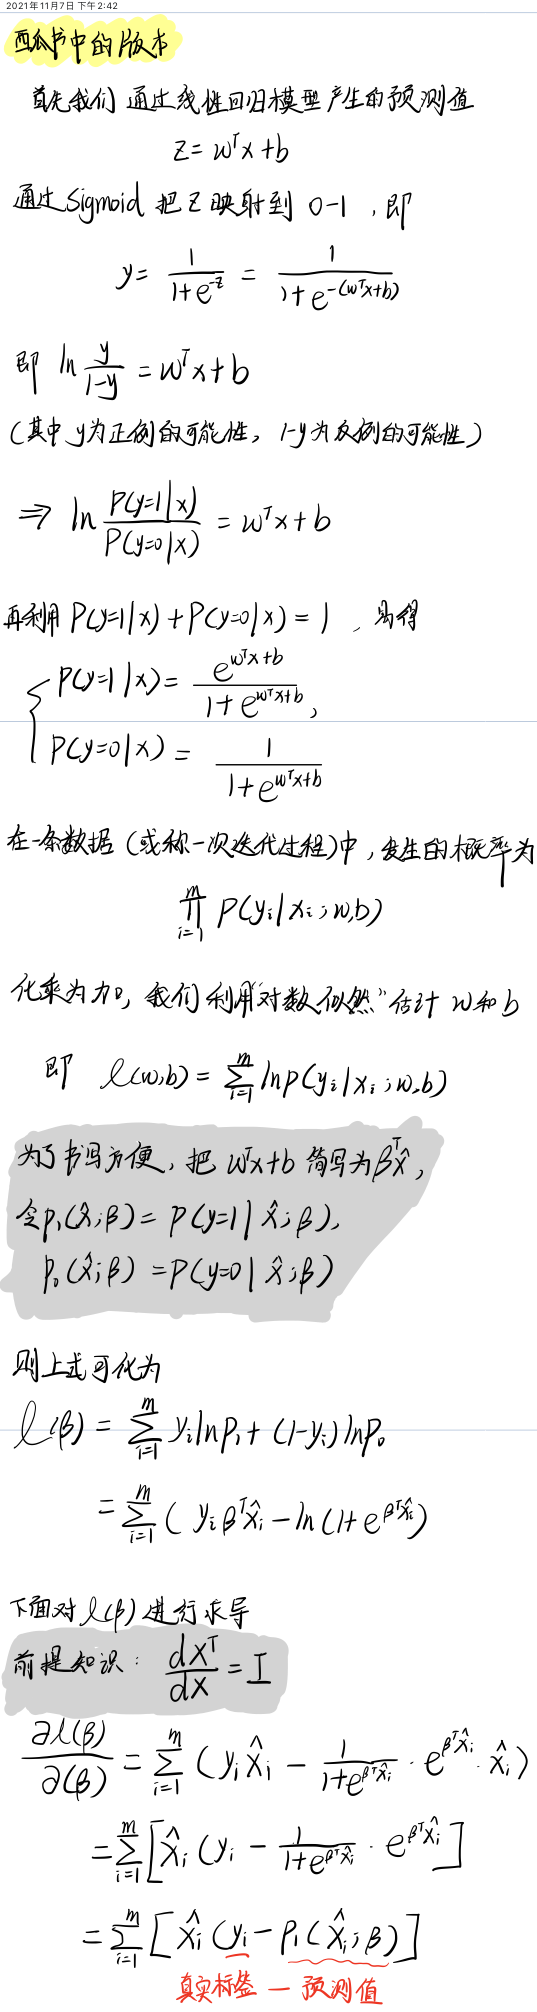 2021年11月7日 下午2:42
西瓜书中的版本
首先我们通过线性回归模型产生的预测值
z = wᵀx + b
通过Sigmoid把z映射到 0-1 , 即
y = 1/(1+e^(-z)) = 1/(1+e^(-(wᵀx+b)))
即 ln y/(1-y) = wᵀx + b
(其中y为正例的可能性, 1-y为反例的可能性)
⇒ ln P(y=1|x)/P(y=0|x) = wᵀx + b
再利用 P(y=1|x) + P(y=0|x) = 1 , 易得
{ P(y=1|x) = e^(wᵀx+b)/(1+e^(wᵀx+b)),
P(y=0|x) = 1/(1+e^(wᵀx+b))
在一条数据 (或称一次迭代过程)中, 发生的概率为
∏_{i=1}^{m} P(yᵢ|xᵢ;w,b)
化乘为加, 我们利用"对数似然"估计 w和b
即 ℓ(w,b) = ∑_{i=1}^{m} ln p(yᵢ|xᵢ;w,b)
为了书写方便, 把 wᵀx+b 简写为 βᵀx̂,
令 p₁(x̂;β) = P(y=1|x̂;β),
p₀(x̂;β) = P(y=0|x̂;β)
则上式可化为
ℓ(β) = ∑_{i=1}^{m} yᵢ ln p₁ + (1-yᵢ) ln p₀
= ∑_{i=1}^{m} (yᵢβᵀx̂ᵢ - ln(1+e^(βᵀx̂ᵢ)))
下面对 ℓ(β) 进行求导
前提知识: dXᵀ/dX = I
∂ℓ(β)/∂(β) = ∑_{i=1}^{m} (yᵢx̂ᵢ - 1/(1+e^(βᵀx̂ᵢ)) · e^(βᵀx̂ᵢ) · x̂ᵢ)
= ∑_{i=1}^{m} [x̂ᵢ(yᵢ - 1/(1+e^(βᵀx̂ᵢ)) · e^(βᵀx̂ᵢ)]
= ∑_{i=1}^{m} [x̂ᵢ(yᵢ - p₁(x̂ᵢ;β)]
真实标签 — 预测值